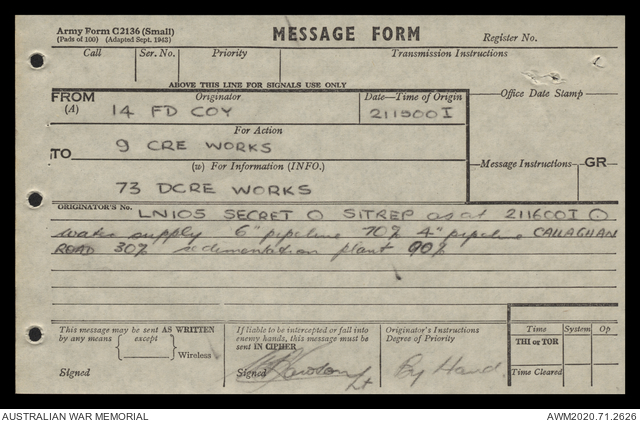 Army Form C2136 (Small)
(Pads of 100) (Adapted Sept. 1943)
MESSAGE FORM
Register No.
Call Ser. No. Priority Transmission Instructions
ABOVE THIS LINE FOR SIGNALS USE ONLY
FROM Originator Date—Time of Origin Office Date Stamp
(A) 14 FD COY 211500I
For Action
TO 9 CRE WORKS
(W) For Information (INFO.) Message Instructions GR
73 DCRE WORKS
ORIGINATOR'S No. LN105 SECRET O SITREP as at 211600I O
water supply 6" pipeline 70% 4" pipeline CALLAGHAN
ROAD 30% sedimentation plant 90%
This message may be sent AS WRITTEN
by any means except
Wireless
Signed
If liable to be intercepted or fall into
enemy hands, this message must be
sent IN CIPHER
Signed Lt
Originator's Instructions
Degree of Priority
By Hand.
Time System Op
THI or TOR
Time Cleared
AUSTRALIAN WAR MEMORIAL AWM2020.71.2626